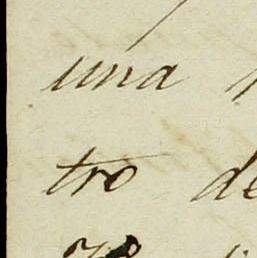 una
tro de